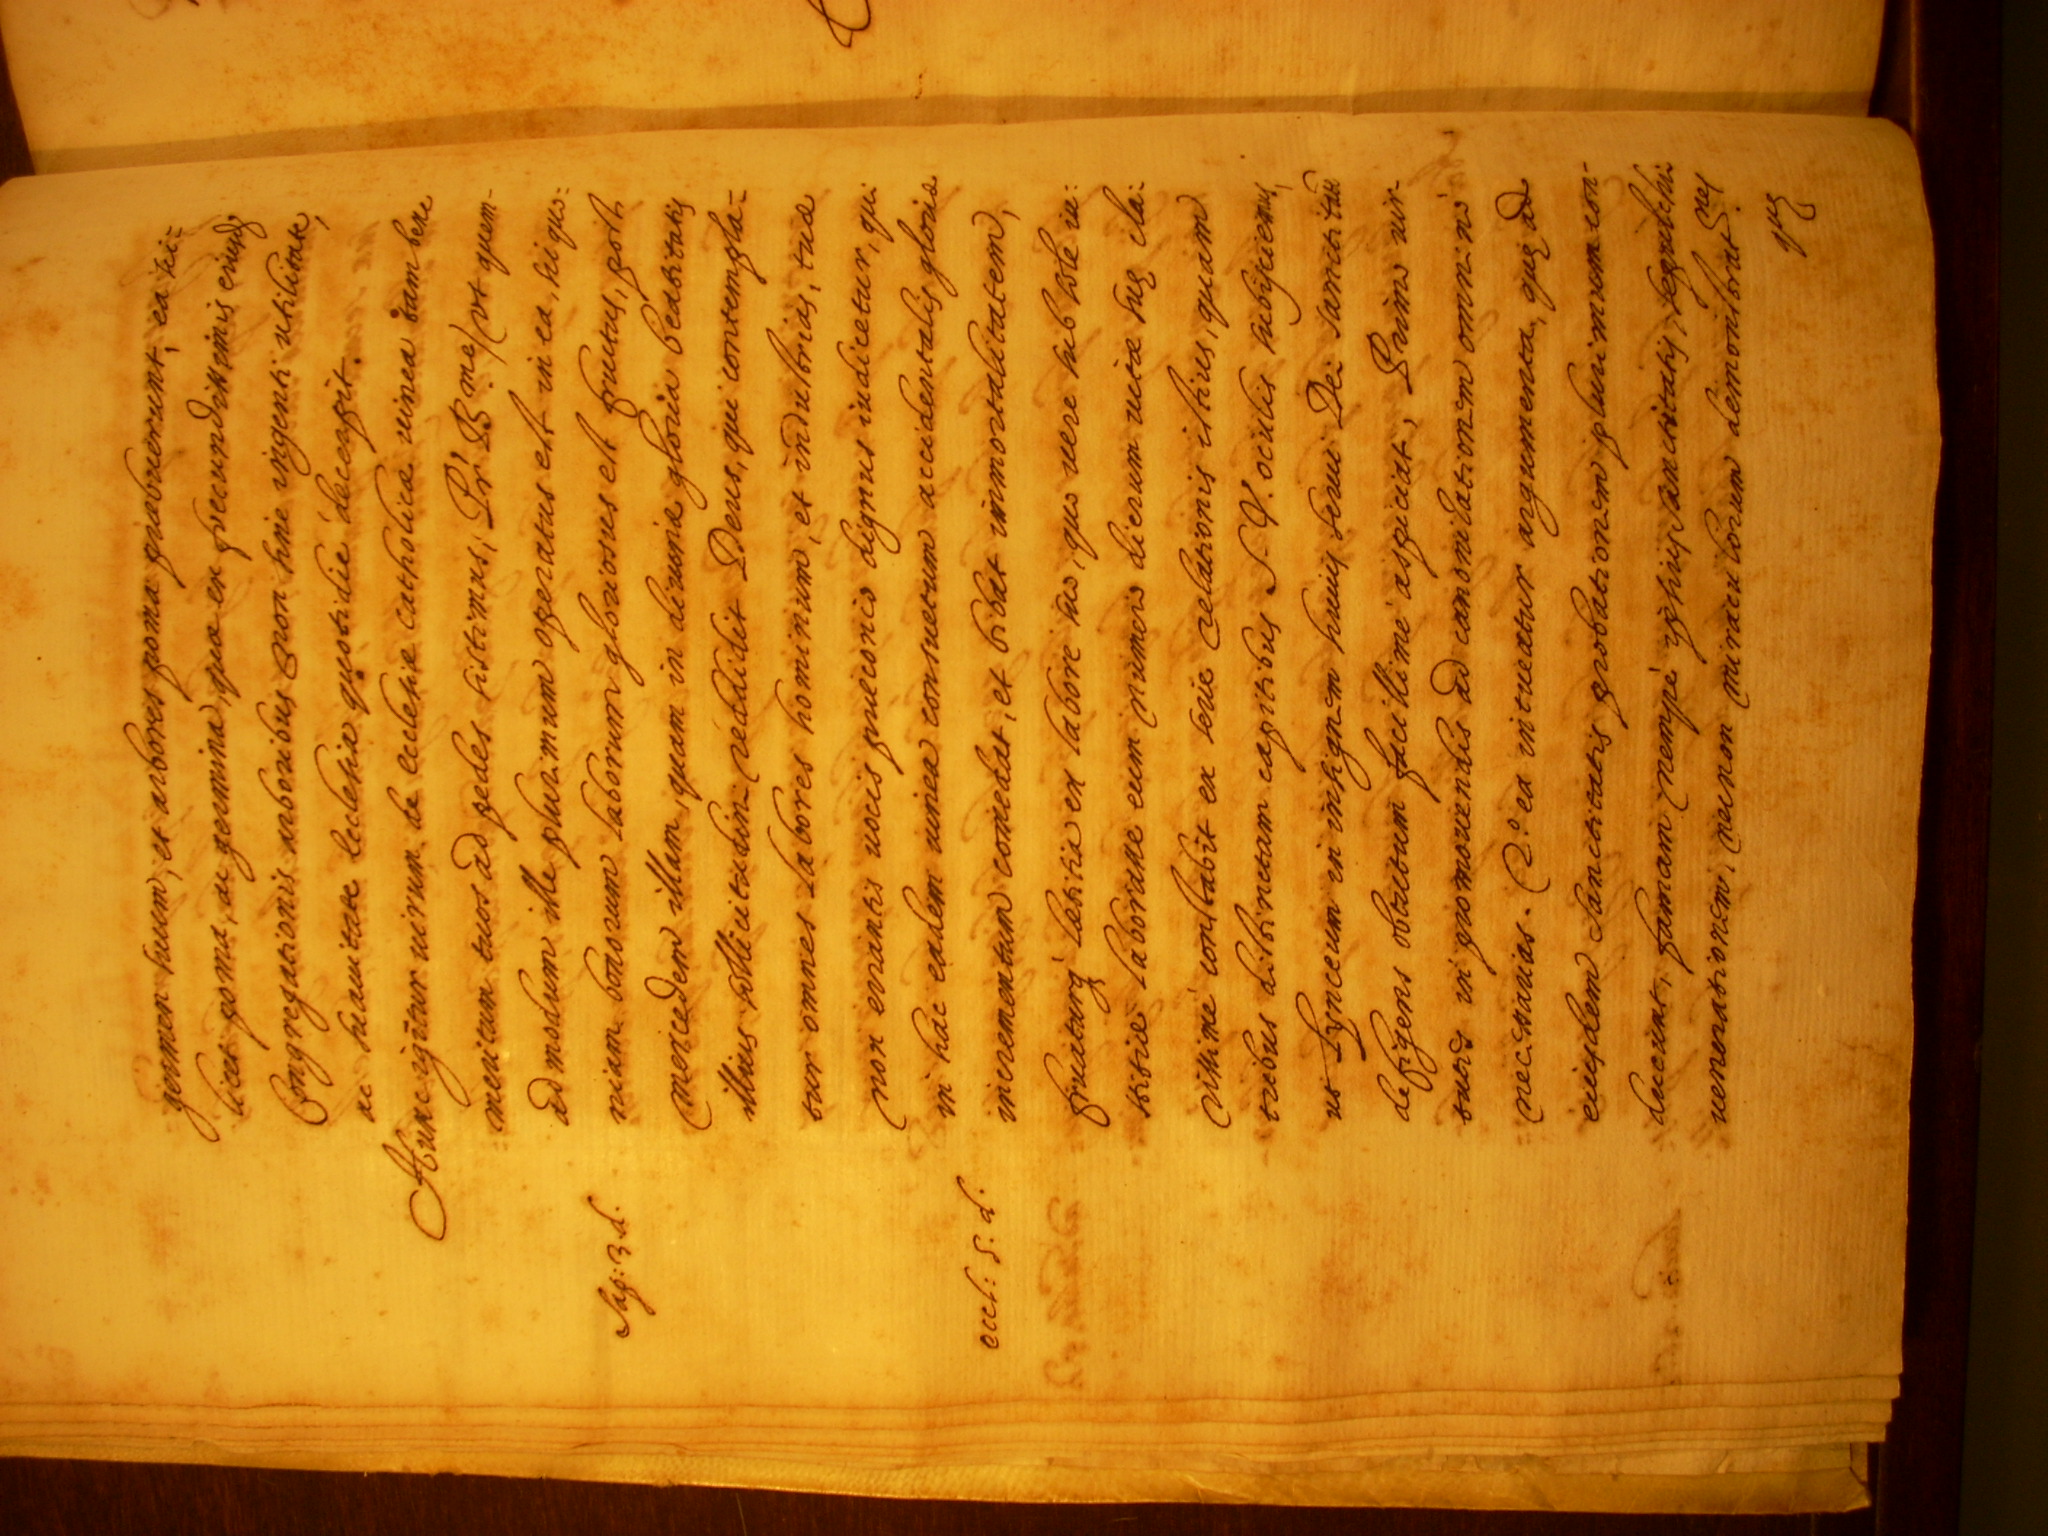 germen suum, et arbores poma praebuerunt, ea sci-
licet poma, ac germina, quae ex fecundissimis eiusdẽ
Congregationis arboribus non sine ingenti utilitate,
ac suauitate Ecclesia quotidiè decerpit.
Hunc igitur uirum de Ecclesiae catholicae uinea tam bene
meritum tuos ad pedes sistimus, Pr. B.me (vt quem-
admodum ille plurimum operatus est in ea, si quo:
Sap: 3. d.
niam bonorum laborum gloriosus est fructus, post
mercedem illam, quam in diuina gloria beatitatis
illius sollicitudini reddidit Deus, qui contempla-
tur omnes labores hominum, et industrias, tuae
non errantis uocis praeconio dignus iudicetur, qui
in hác eadem uinea consuetum accidentalis gloriae
eccl: 5. d.
incrementum comedat, et bibat immortalitatem,
fruaturq́ue laetitia ex labore suo, quo uere sub sole in:
tistise laborasse eum numero dierum uitae suae cla:
rissimè constabit ex serie relationis istius, quam
tribus distinctam capitibus S. V. oculis subijciemus,
ut Lynceum in insignem huius serui Dei sanctitatẽ
defigens obtutum facillimè aspiciat, Primò uir-
tutes in promouendis ad canonizationem omninò
necessarias. 2.º ea intueatur argumenta, quae ad
eiusdem sanctitatis probationem plurimum con-
ducunt, famam nempè ipsius sanctitatis, sepulchri
uenerationem, necnon miraculorum demonstrat.nes